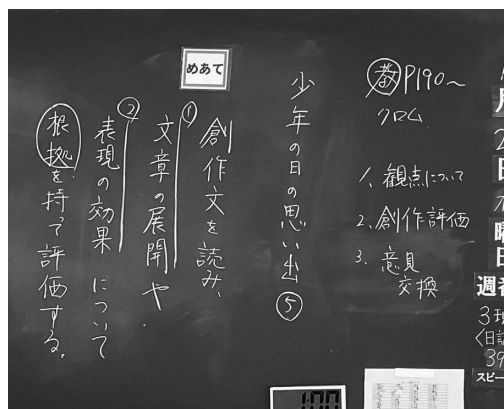 教P190～
クロム
1、観点について
2、創作評価
3、意見
交換
少年の日の思い出⑤
めあて
創作文を読み、
①文章の展開や
②表現の効果について
根拠を持って評価する。
月
日
曜
日
週番
スピー